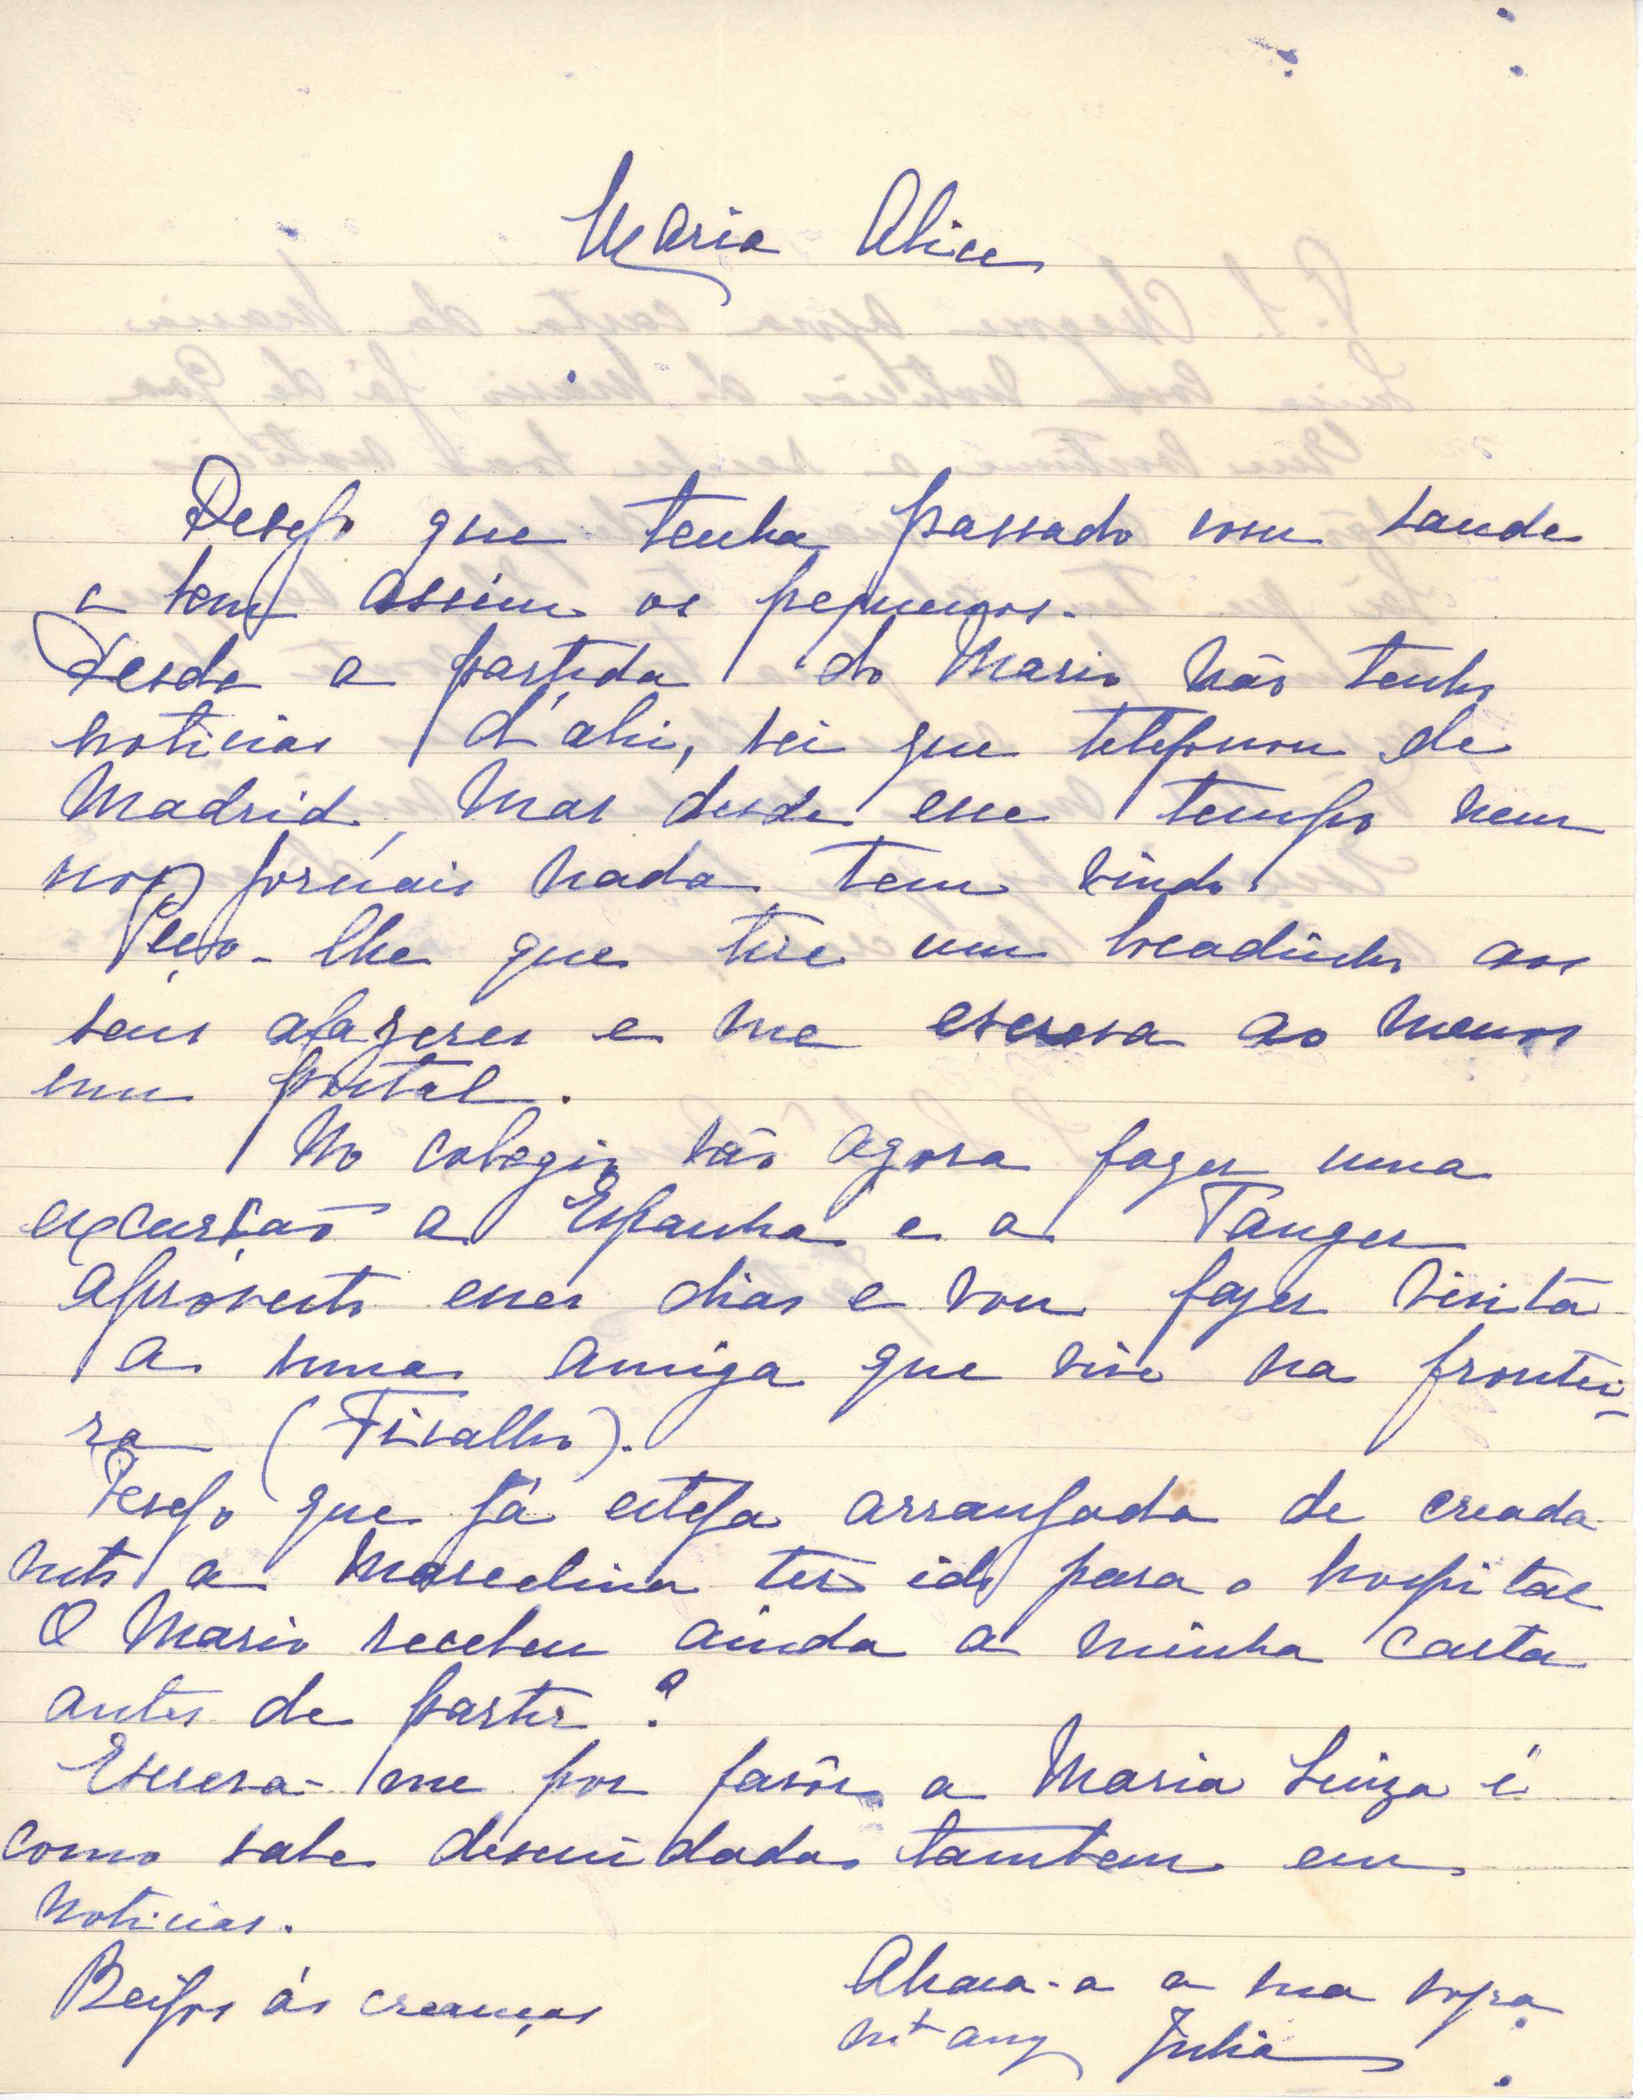 Maria Alice
Desejo que tenha passado com saude
e bem assim os pequenos.
Desde a partida do Mario não tenho
noticias d'ahi, sei que telefonou de
Madrid, mas desde esse tempo nem
nos jornais nada tem vindo.
Peço-lhe que tire um bocadinho aos
seus afazeres e me escreva ao menos
um postal.
No colegio vão agora fazer uma
excursão a Espanha e a Tanger
aproveito esses dias e vou fazer visita
a uma amiga que vive na frontei-
ra (Ficalho).
Desejo que já esteja arranjada de creada
visto a Marcelina ter ido para o hospital
O Mario recebeu ainda a minha carta
antes de partir?
Escreva-me por favôr, a Maria Luiza é
como sabe descuidada tambem em
noticias.
Beijos ás creanças
Abraça-a a sua sogra
mt amg Julia